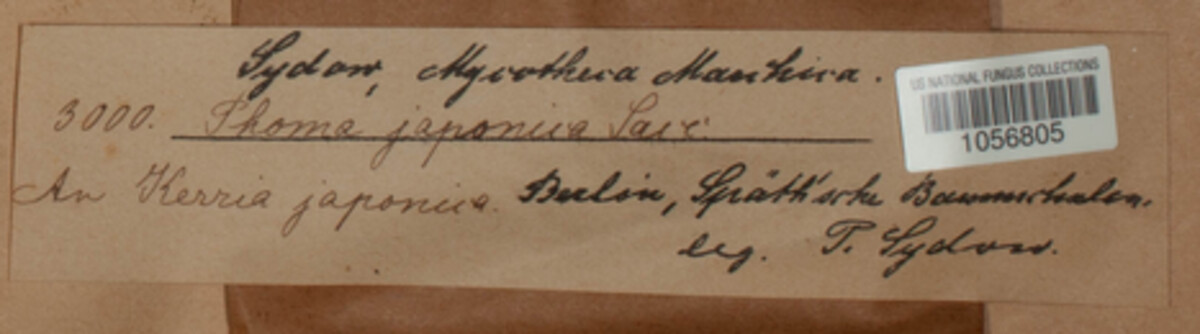 Sydow, Mycotheca Marchica.
3000. Phoma japonica Sacc.
An Kerria japonica. Berlin, Späth'sche Baumschulen.
leg. P. Sydow.
US NATIONAL FUNGUS COLLECTIONS
1056805